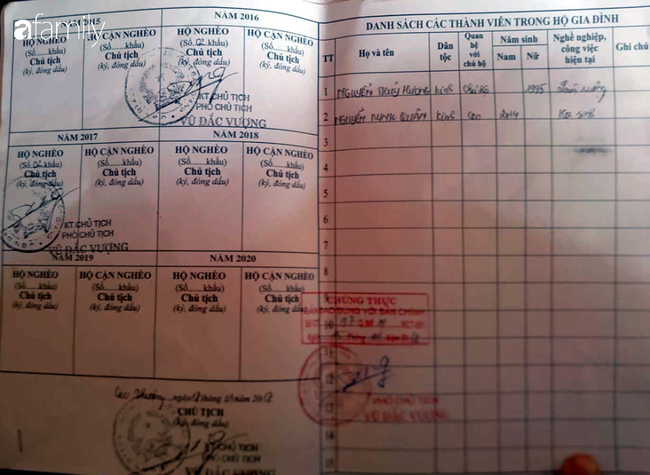 afamily
NĂM 2015
NĂM 2016
HỘ NGHÈO
(Số khẩu)
Chủ tịch
(ký, đóng dấu)
HỘ CẬN NGHÈO
(Số khẩu)
Chủ tịch
(ký, đóng dấu)
HỘ NGHÈO
(Số 02 khẩu)
Chủ tịch
(ký, đóng dấu)
HỘ CẬN NGHÈO
(Số khẩu)
Chủ tịch
(ký, đóng dấu)
KT.CHỦ TỊCH
PHÓ CHỦ TỊCH
VŨ ĐẮC VƯỢNG
NĂM 2017
NĂM 2018
HỘ NGHÈO
(Số 02 khẩu)
Chủ tịch
(ký, đóng dấu)
HỘ CẬN NGHÈO
(Số khẩu)
Chủ tịch
(ký, đóng dấu)
HỘ NGHÈO
(Số khẩu)
Chủ tịch
(ký, đóng dấu)
HỘ CẬN NGHÈO
(Số khẩu)
Chủ tịch
(ký, đóng dấu)
KT.CHỦ TỊCH
PHÓ CHỦ TỊCH
VŨ ĐẮC VƯỢNG
NĂM 2019
NĂM 2020
HỘ NGHÈO
(Số khẩu)
Chủ tịch
(ký, đóng dấu)
HỘ CẬN NGHÈO
(Số khẩu)
Chủ tịch
(ký, đóng dấu)
HỘ NGHÈO
(Số khẩu)
Chủ tịch
(ký, đóng dấu)
HỘ CẬN NGHÈO
(Số khẩu)
Chủ tịch
(ký, đóng dấu)
ngày tháng năm
CHỦ TỊCH
(ký, đóng dấu)
KT.CHỦ TỊCH
PHÓ CHỦ TỊCH
VŨ ĐẮC VƯỢNG
DANH SÁCH CÁC THÀNH VIÊN TRONG HỘ GIA ĐÌNH
TT
Họ và tên
Dân tộc
Quan hệ với chủ hộ
Năm sinh
Nam
Nữ
Nghề nghiệp, công việc hiện tại
Ghi chú
1 NGUYỄN THUÝ Hương kinh Chủ hộ 1995
2 NGUYỄN MINH QUÂN kinh con 2014
3
4
5
6
7
8
9
10
12
13
15
CHỨNG THỰC
BẢN SAO ĐÚNG VỚI BẢN CHÍNH
PHÓ CHỦ TỊCH
VŨ ĐẮC VƯỢNG